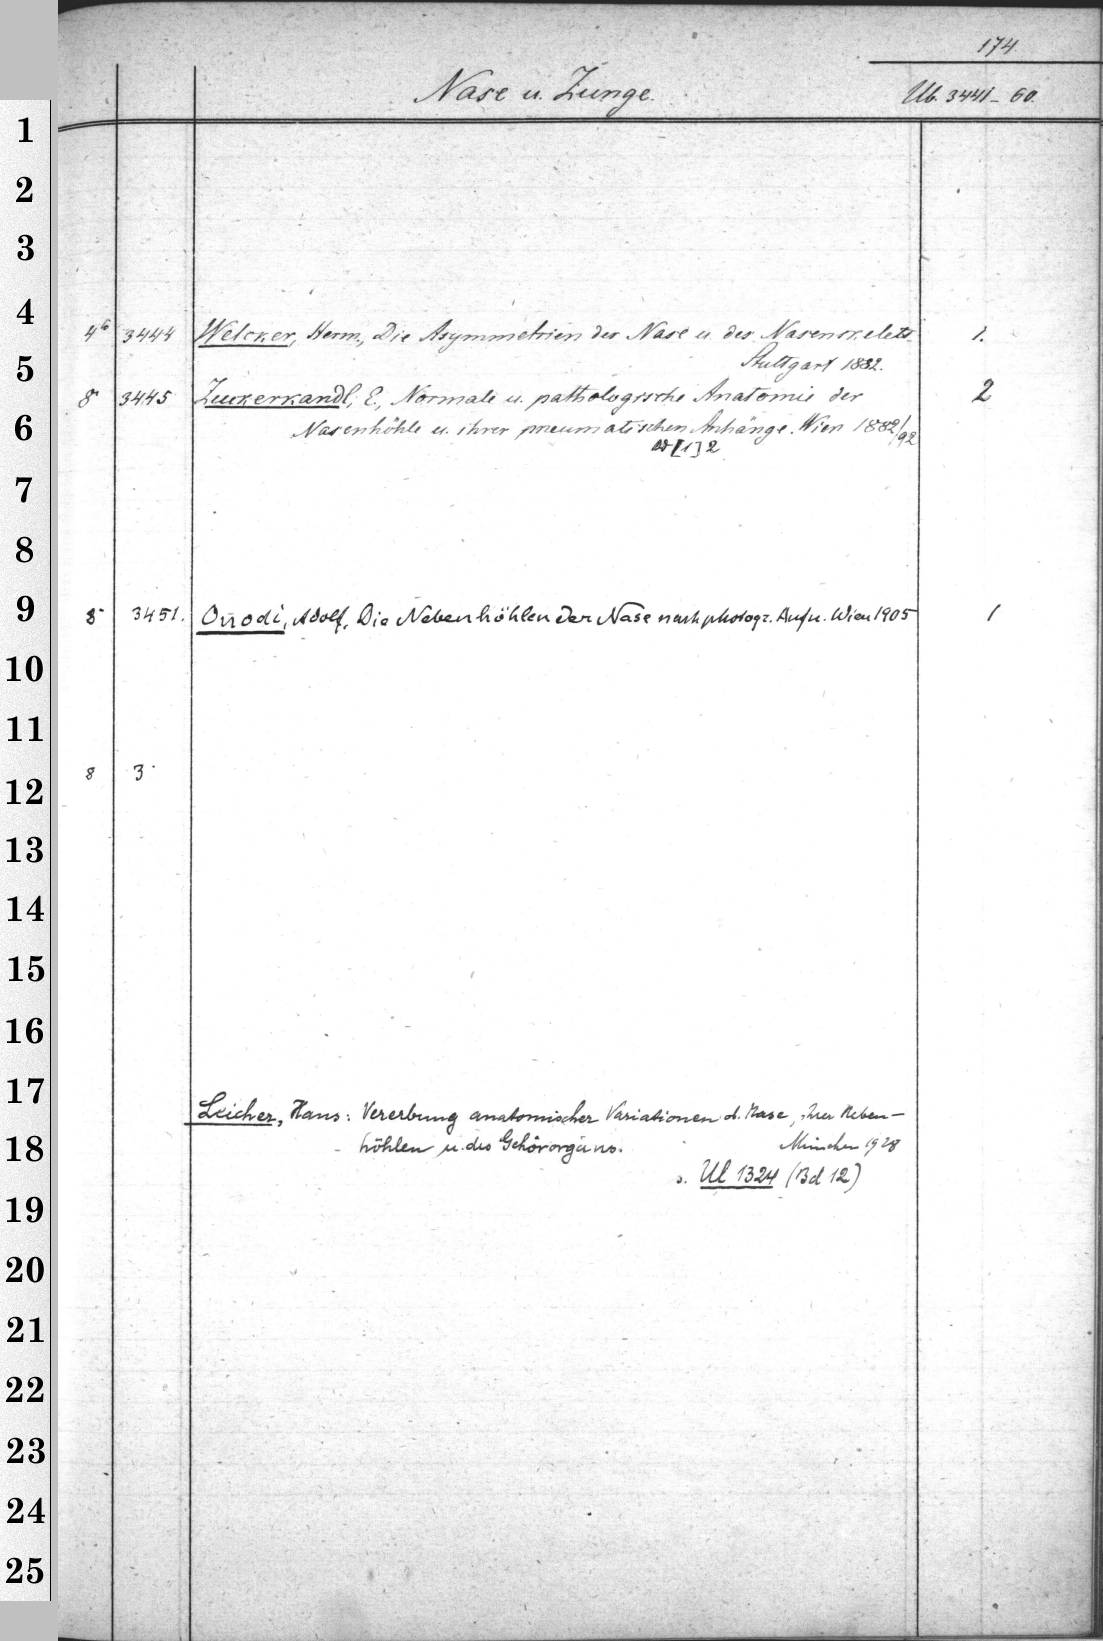 174
Nase u. Zunge.
Ub. 3441-60.
1
2
3
4
4° 3444 Welcker, Herm., Die Asymmetrien der Nase u. des Nasenskelets. 1.
Stuttgart 1882.
5
8° 3445 Zuckerkandl, E., Normale u. pathologische Anatomie der 2
6
Nasenhöhle u. ihrer pneumatischen Anhänge. Wien 1882/92
[1] 2
7
8
9
8° 3451. Onodi, Adolf, Die Nebenhöhlen der Nase nach photogr. Aufn. Wien 1905 1
10
11
8 3
12
13
14
15
16
17
Leicher, Hans: Vererbung anatomischer Variationen d. Nase, ihrer Neben-
18
höhlen u. des Gehörorgans. München 1928
s. Ul 1324 (Bd 12)
19
20
21
22
23
24
25